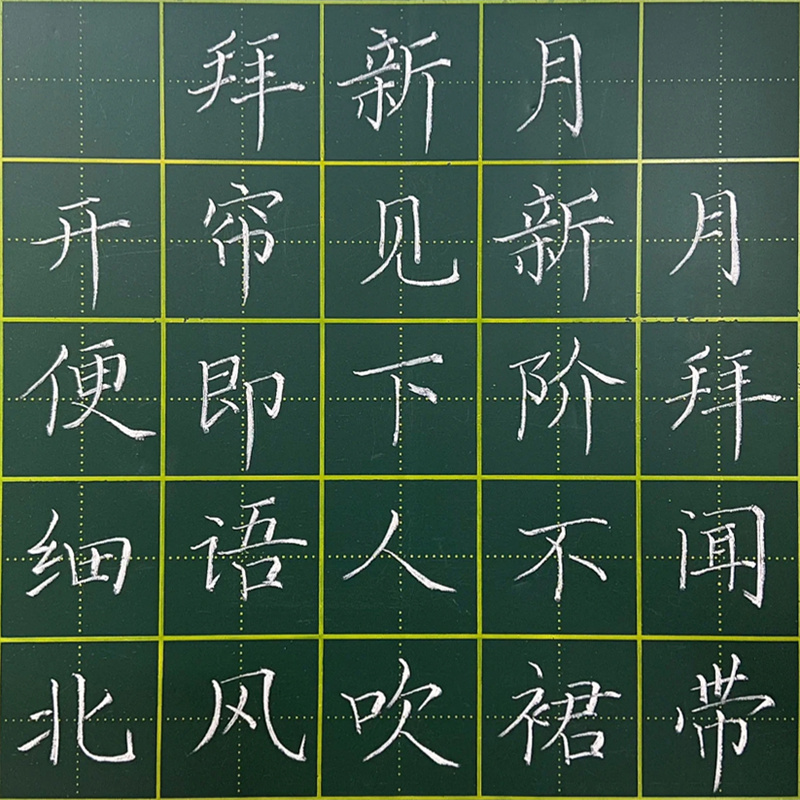 拜新月
开帘见新月
便即下阶拜
细语人不闻
北风吹裙带